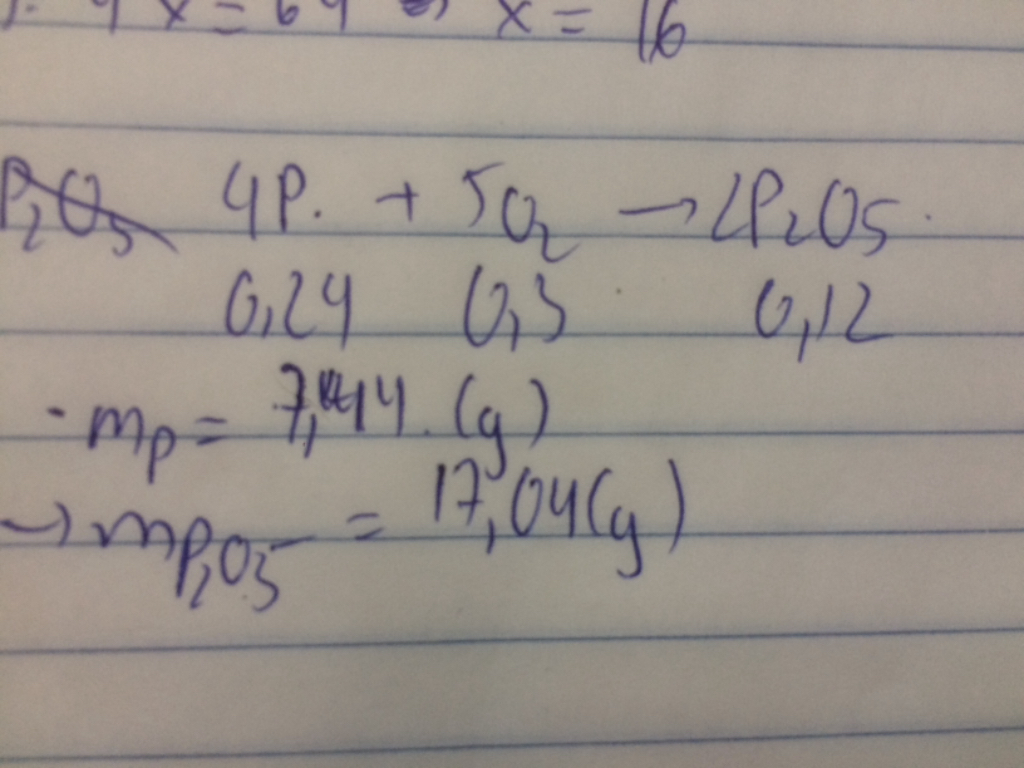 4x = 64 => x = 16
P2O5 4P. + 5O2 → 2P2O5.
0,24 0,3 0,12
- mP = 7,44 (g)
→ mP2O5 = 17,04 (g)